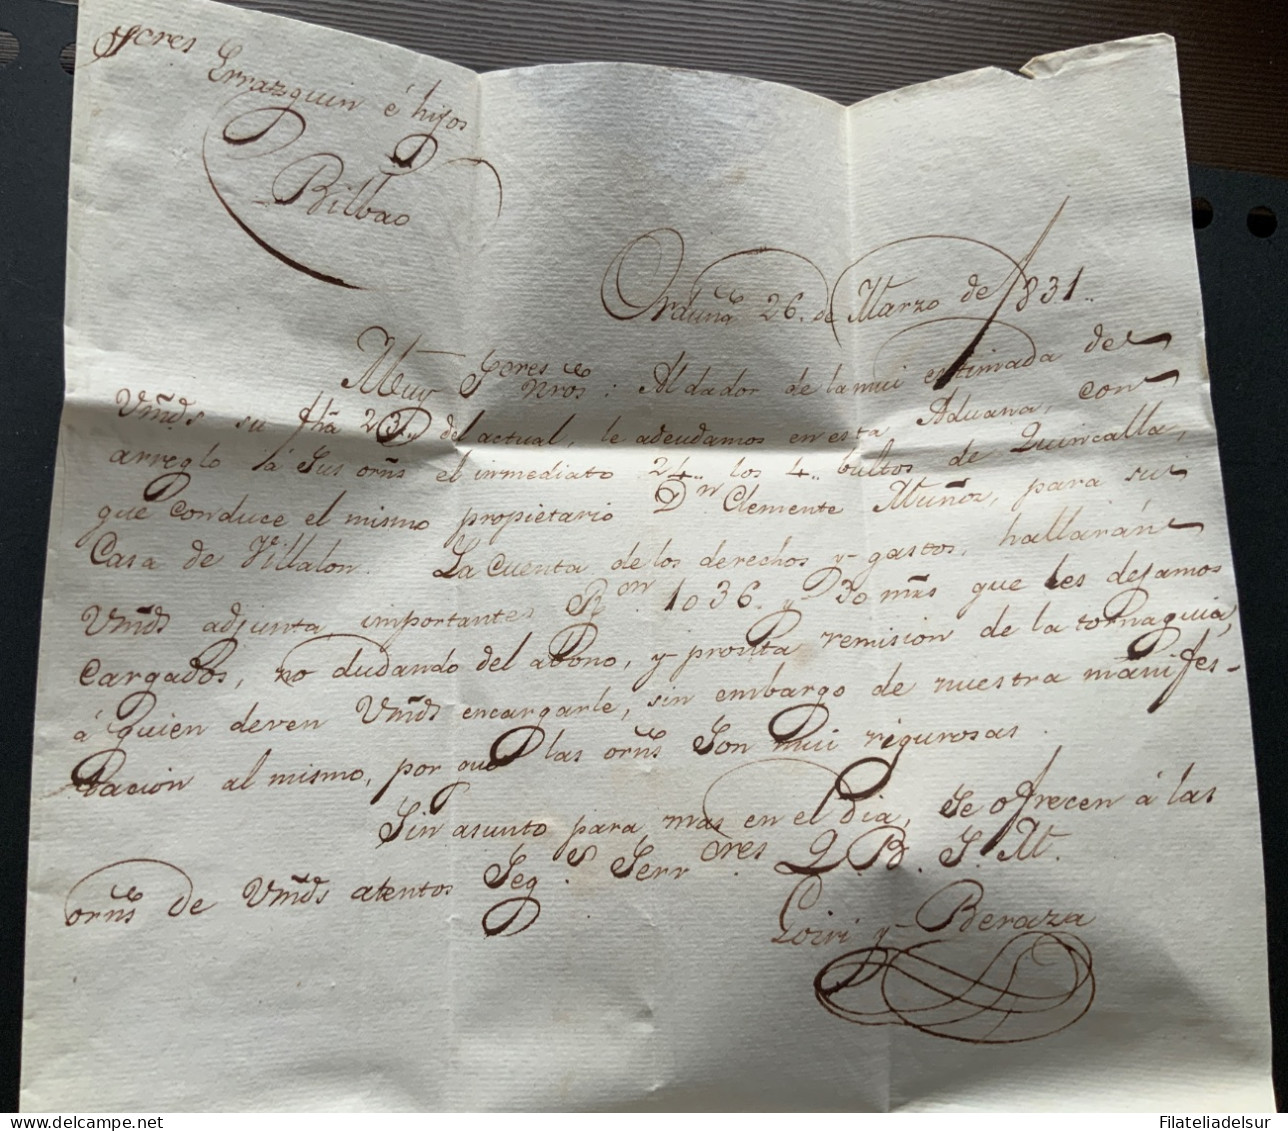 Sres Errazquin é hijos
Bilbao
Orduña 26. de Marzo de 1831..
Muy Sores Nros: Al dador de la mui estimada de
Vmds su fha 23.. del actual, le adeudamos en esta Aduana, con
arreglo á sus orns el inmediato 24.. los 4.. bultos de Quincalla,
que conduce el mismo propietario Dn Clemente Muñoz, para su
Casa de Villalon. La cuenta de los derechos y gastos, hallarán
Vmds adjunta importantes Ron 1036. y 30 mrs que les dejamos
cargados, no dudando del abono, y pronta remision de la tornaguia,
á quien deven Vmds encargarle, sin embargo de nuestra manifes-
tacion al mismo, por que las orns son mui rigurosas.
Sin asunto para mas en el dia, se ofrecen á las
orns de Vmds atentos Seg.s Serv.ores Q. B. S. M.
Loizi y Beraza
Filateliadelsur.com